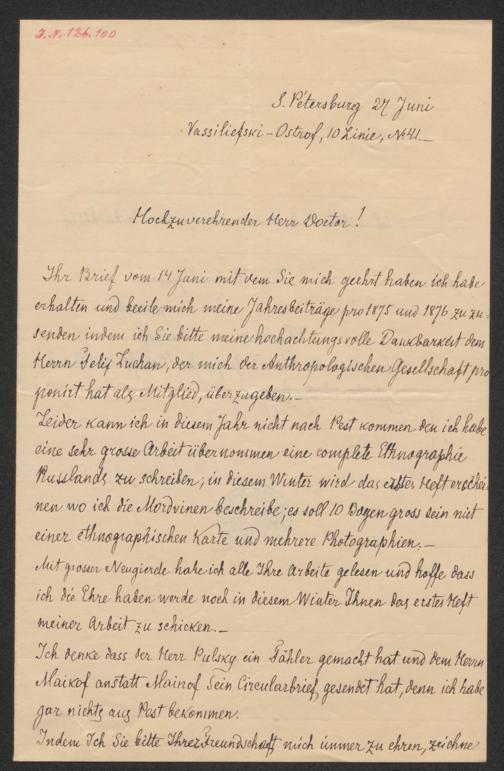 I.N. 126.100
S. Pétersburg 27 Juni
Vassiliefski-Ostrof, 10 Linie, № 41.–
Hochzuverehrender Herr Doctor!
Ihr Brief vom 14 Juni mit dem Sie mich geehrt haben ich habe
erhalten und beeile mich meine Jahresbeiträge pro 1875 und 1876 zu zu-
senden indem ich Sie bitte meine hochachtungsvolle Dankbarkeit dem
Herrn Felix Luchan, der mich der Anthropologischen Gesellschaft pro
ponirt hat als Mitglied, überzugeben.–
Leider kann ich in diesem Jahr nicht nach Pest kommen den ich habe
eine sehr grosse Arbeit übernommen eine complete Ethnographie
Russlands zu schreiben; in diesem Winter wird das erstes Heft erschei-
nen wo ich die Mordvinen beschreibe; es soll 10 Bogen gross sein mit
einer ethnographischen Karte und mehrere Photographien.–
Mit grosser Neugierde habe ich alle Ihre Arbeite gelesen und hoffe dass
ich die Ehre haben werde noch in diesem Winter Ihnen das erstes Heft
meiner Arbeit zu schicken.–
Ich denke dass der Herr Pulsky ein Fähler gemacht hat und dem Herrn
Maikof anstatt Mainof Sein Circularbrief, gesendet hat, denn ich habe
gar nichts aus Pest bekommen.
Indem Ich Sie bitte Ihrer Freundschaft mich immer zu ehren, zeichne